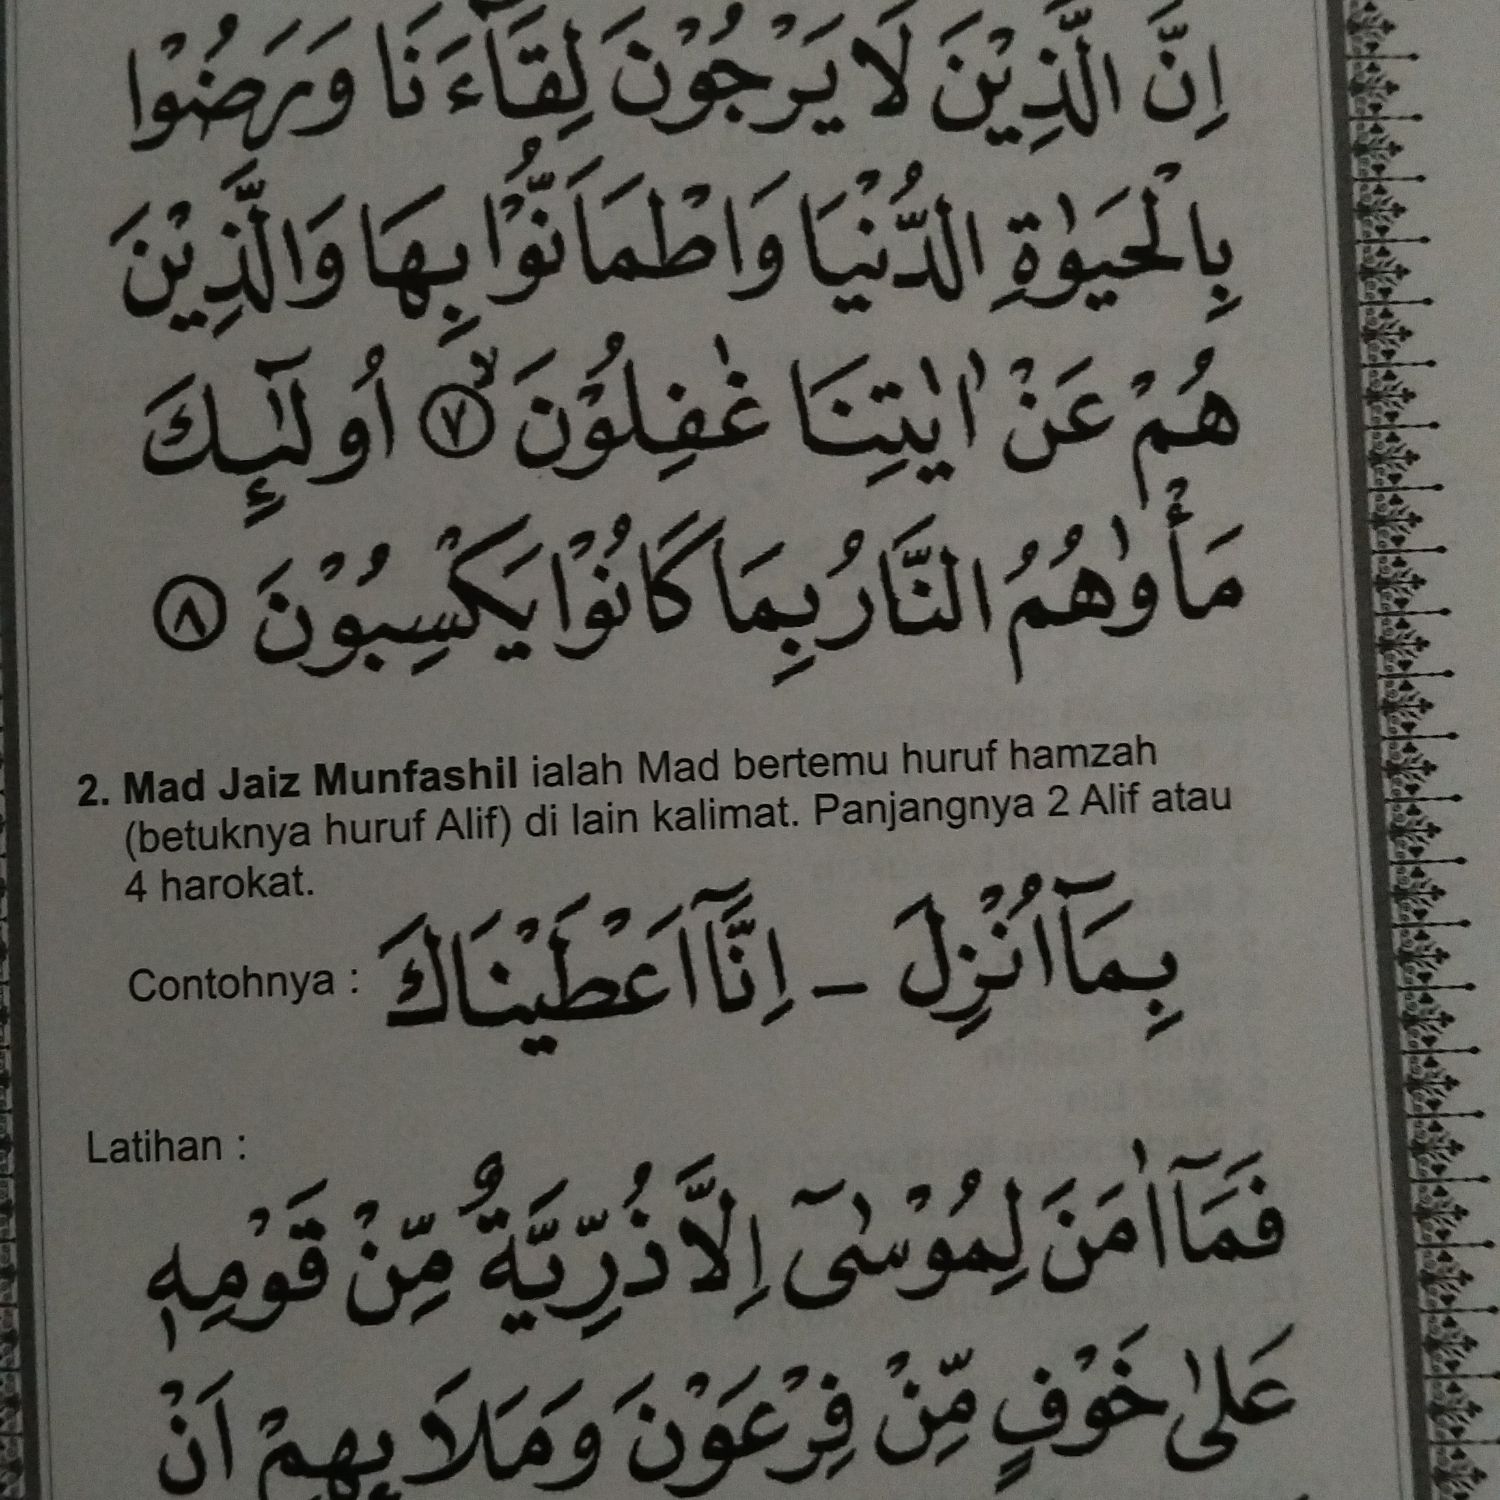 اِنَّ الَّذِيْنَ لَا يَرْجُوْنَ لِقَآءَنَا وَرَضُوْا
بِالْحَيٰوةِ الدُّنْيَا وَاطْمَاَنُّوْا بِهَا وَالَّذِيْنَ
هُمْ عَنْ اٰيٰتِنَا غٰفِلُوْنَۙ ٧ اُولٰٓئِكَ
مَأْوٰىهُمُ النَّارُ بِمَا كَانُوْا يَكْسِبُوْنَ ٨
2. Mad Jaiz Munfashil ialah Mad bertemu huruf hamzah
(betuknya huruf Alif) di lain kalimat. Panjangnya 2 Alif atau
4 harokat.
Contohnya : بِمَآ اُنْزِلَ – اِنَّآ اَعْطَيْنَاكَ
Latihan :
فَمَآ اٰمَنَ لِمُوْسٰىٓ اِلَّا ذُرِّيَّةٌ مِّنْ قَوْمِهٖ
عَلٰى خَوْفٍ مِّنْ فِرْعَوْنَ وَمَلَا۟ئِهِمْ اَنْ